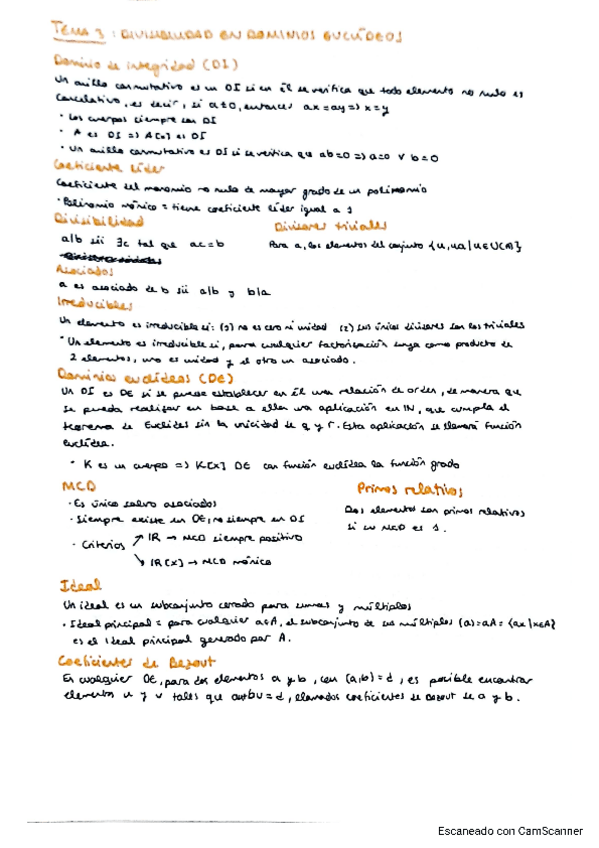 TEMA 3: DIVISIBILIDAD EN DOMINIOS EUCLÍDEOS
Dominio de integridad (DI)
Un anillo conmutativo es un DI si en él se verifica que todo elemento no nulo es
cancelativo, es decir, si a≠0, entonces ax=ay => x=y
· Los cuerpos siempre son DI
· A es DI => A[x] es DI
· Un anillo conmutativo es DI si se verifica que ab=0 => a=0 v b=0
Coeficiente líder
Coeficiente del monomio no nulo de mayor grado de un polinomio
· Polinomio mónico = tiene coeficiente líder igual a 1
Divisibilidad
a/b sii ∃c tal que ac=b
Divisores triviales
Para a, los elementos del conjunto {u,ua/u∈U(A)}
Asociados
a es asociado de b sii a/b y b/a
Irreducibles
Un elemento es irreducible si: (1) no es cero ni unidad (2) sus únicos divisores son los triviales
· Un elemento es irreducible si, para cualquier factorización suya como producto de
2 elementos, uno es unidad y el otro un asociado.
Dominios euclídeos (DE)
Un DI es DE si se puede establecer en él una relación de orden, de manera que
se pueda realizar en base a ella una aplicación en IN, que cumpla el
teorema de Euclides sin la unicidad de q y r. Esta aplicación se llamará función
euclídea.
· K es un cuerpo => K[x] DE con función euclídea la función grado
MCD
· Es único salvo asociados
· Siempre existe en DE, no siempre en DI
· Criterios ↗ IR → MCD siempre positivo
↘ IR[x] → MCD mónico
Primos relativos
Dos elementos son primos relativos
si su MCD es 1.
Ideal
Un ideal es un subconjunto cerrado para sumas y múltiplos
· Ideal principal = para cualquier a∈A, el subconjunto de sus múltiplos (a)=aA= {ax/x∈A}
es el ideal principal generado por A.
Coeficientes de Bezout
En cualquier DE, para dos elementos a y b, con (a,b)=d, es posible encontrar
elementos u y v tales que au+bv=d, llamados coeficientes de Bezout de a y b.
Escaneado con CamScanner